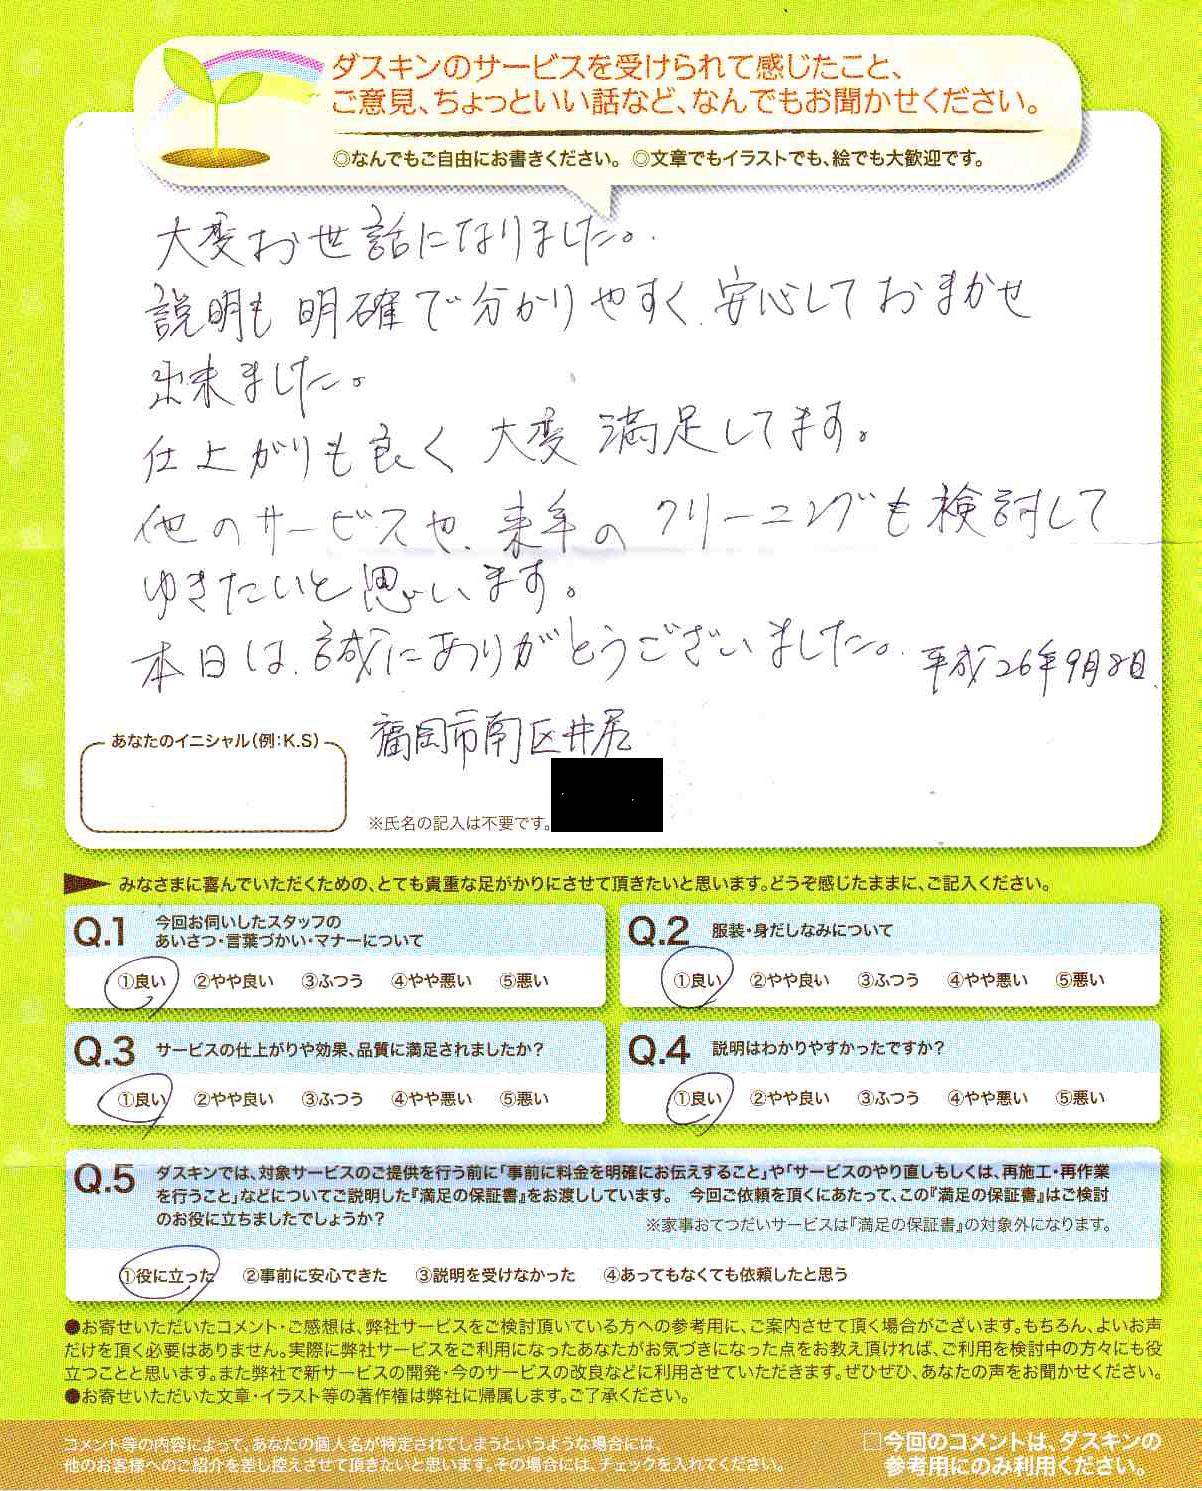 ダスキンのサービスを受けられて感じたこと、
ご意見、ちょっといい話など、なんでもお聞かせください。
◎なんでもご自由にお書きください。 ◎文章でもイラストでも、絵でも大歓迎です。
大変お世話になりました。
説明も明確で分かりやすく、安心しておまかせ
出来ました。
仕上がりも良く大変満足してます。
他のサービスや、来年のクリーニングも検討して
ゆきたいと思います。
本日は、誠にありがとうございました。 平成26年9月8日
福岡市南区井尻
あなたのイニシャル(例:K.S)
※氏名の記入は不要です。
みなさまに喜んでいただくための、とても貴重な足がかりにさせて頂きたいと思います。どうぞ感じたままに、ご記入ください。
Q.1 今回お伺いしたスタッフの
あいさつ・言葉づかい・マナーについて
①良い ②やや良い ③ふつう ④やや悪い ⑤悪い
Q.2 服装・身だしなみについて
①良い ②やや良い ③ふつう ④やや悪い ⑤悪い
Q.3 サービスの仕上がりや効果、品質に満足されましたか?
①良い ②やや良い ③ふつう ④やや悪い ⑤悪い
Q.4 説明はわかりやすかったですか?
①良い ②やや良い ③ふつう ④やや悪い ⑤悪い
Q.5 ダスキンでは、対象サービスのご提供を行う前に「事前に料金を明確にお伝えすること」や「サービスのやり直しもしくは、再施工・再作業
を行うこと」などについてご説明した『満足の保証書』をお渡ししています。 今回ご依頼を頂くにあたって、この『満足の保証書』はご検討
のお役に立ちましたでしょうか?
※家事おてつだいサービスは『満足の保証書』の対象外になります。
①役に立った ②事前に安心できた ③説明を受けなかった ④あってもなくても依頼したと思う
●お寄せいただいたコメント・ご感想は、弊社サービスをご検討頂いている方への参考用に、ご案内させて頂く場合がございます。もちろん、よいお声
だけを頂く必要はありません。実際に弊社サービスをご利用になったあなたがお気づきになった点をお教え頂ければ、ご利用を検討中の方々にも役
立つことと思います。また弊社で新サービスの開発・今のサービスの改良などに利用させていただきます。ぜひぜひ、あなたの声をお聞かせください。
●お寄せいただいた文章・イラスト等の著作権は弊社に帰属します。ご了承ください。
コメント等の内容によって、あなたの個人名が特定されてしまうというような場合には、
他のお客様へのご紹介を差し控えさせて頂きたいと思います。その場合には、チェックを入れてください。
□今回のコメントは、ダスキンの
参考用にのみ利用ください。